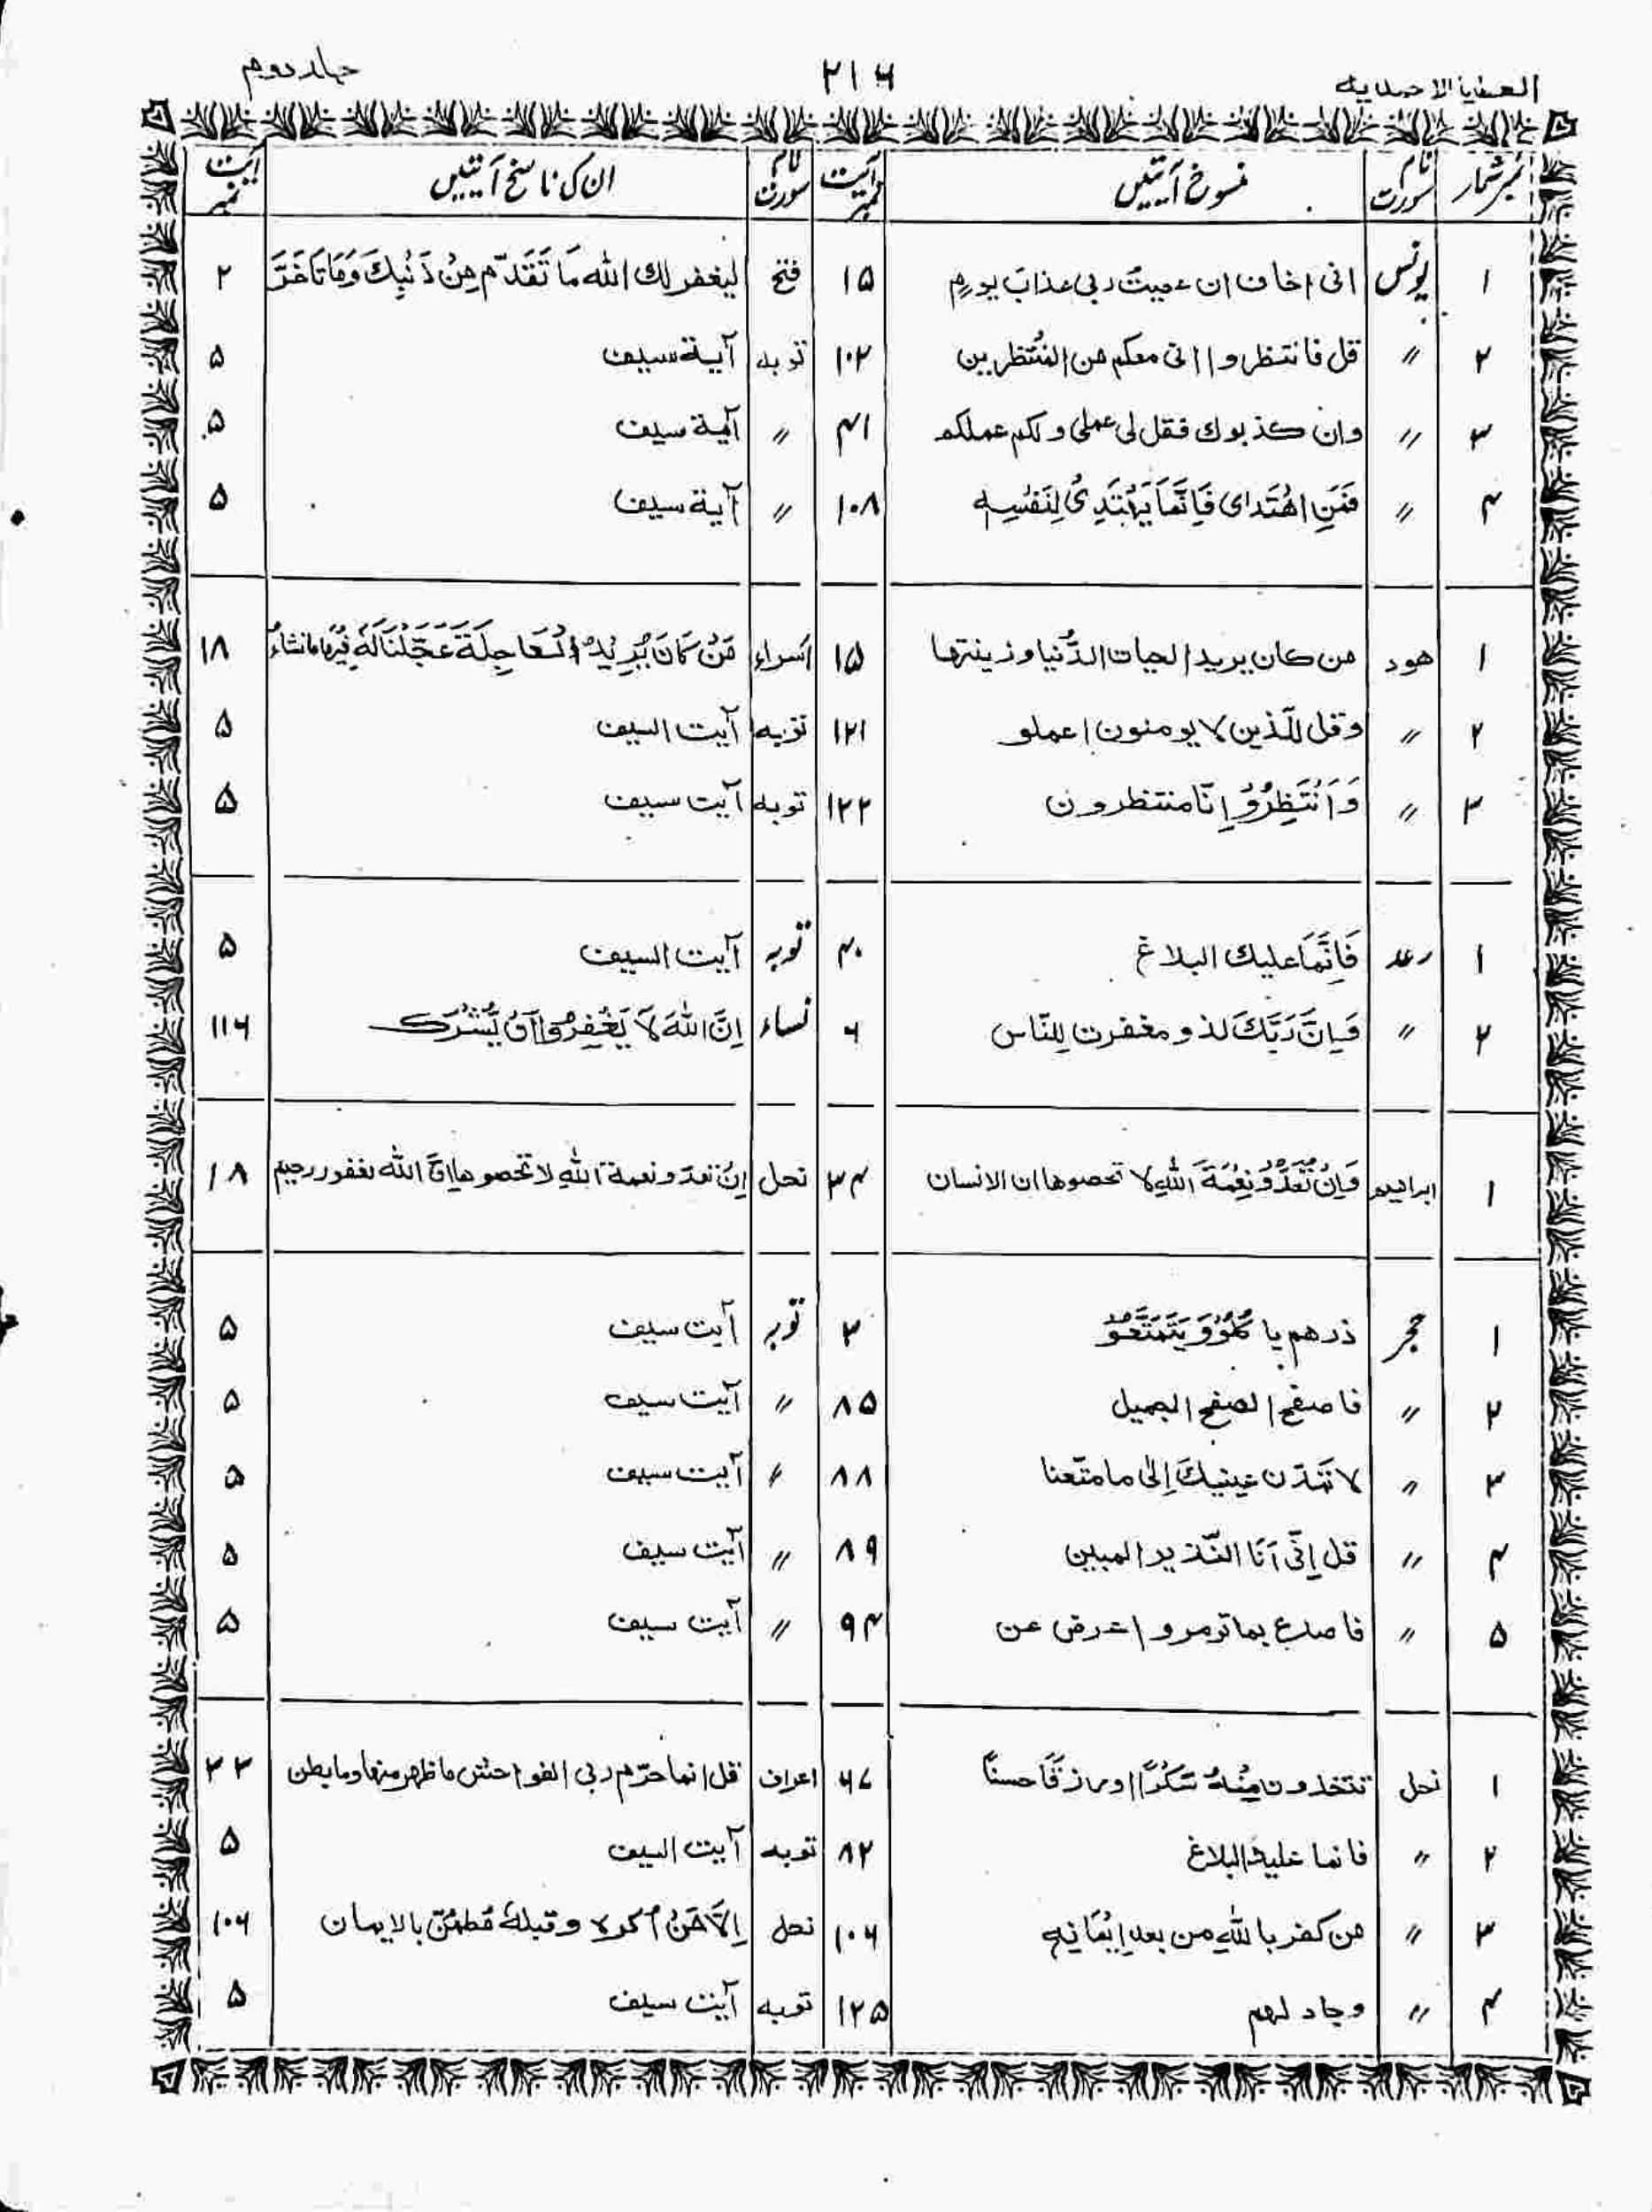 العطایا الاحمدیه ۲۱۶ جلد دوم
نمبر شمار نام سورت منسوخ آیتیں آیت نمبر نام سورت ان کی ناسخ آیتیں آیت نمبر
۱ یونس انی اخاف ان عصیت ربی عذاب یورم ۱۵ فتح لیغفر لك الله مَا تَقَدَّم مِنْ ذَنْبِكَ وَمَا تَاَخَّرَ ۲
۲ 〃 قل فانتظروا انی معکم من المُنتظرین ۱۰۲ توبه آیة سیف ۵
۳ 〃 وان كذبوك فقل لی عملی ولکم عملکم ۴۱ 〃 آیة سیف ۵
۴ 〃 فَمَنِ اهْتَدای فَاِنَّمَا يَهْتَدِىْ لِنَفْسِهِ ۱۰۸ 〃 آیة سیف ۵
۱ هود من کان یرید الحیات الدُّنیا وزینتها ۱۵ اسراء مَنْ كَانَ يُرِيْدُ الْعَاجِلَةَ عَجَّلْنَا لَهٗ فِيْهَا مَا نشَاءُ ۱۸
۲ 〃 وقل للّذین لا یومنون اعملو ۱۲۱ توبه آیت السیف ۵
۳ 〃 وَانْتَظِرُوْ اِنّا منتظرون ۱۲۲ توبه آیت سیف ۵
۱ رعد فَاِنَّمَا علیك البلاغ ۴۰ توبہ آیت السیف ۵
۲ 〃 وَاِنَّ رَبَّكَ لذو مغفرت لِلنّاس ۶ نساء اِنَّ اللهَ لَا يَغْفِرُوا اَنْ يُّشْرَك ۱۱۶
۱ ابراهیم وَاِنْ تَعُدُّوْ نِعْمَةَ اللهِ لا تحصوها ان الانسان ۳۴ نحل اِنْ تعدّو نعمة اللهِ لا تحصوها اِنَّ الله لغفور رحیم ۱۸
۱ حجر ذرهم یا كُلُوْ وَ يَتَمَتَّعُوْ ۳ توبہ آیت سیف ۵
۲ 〃 فاصفح الصفح الجمیل ۸۵ 〃 آیت سیف ۵
۳ 〃 لا تَمُدّن عینیكَ اِلیٰ ما متّعنا ۸۸ 〃 آیت سیف ۵
۴ 〃 قل اِنّی اَنَا النّذیر المبین ۸۹ 〃 آیت سیف ۵
۵ 〃 فاصدع بما تومر و اعرض عن ۹۴ 〃 آیت سیف ۵
۱ نحل تتخذون مِنْهُ سَكَرًا اورزقًا حسنًا ۶۷ اعراف قل انما حرّم ربی الفواحش ما ظهر منها وما بطن ۳۳
۲ 〃 فانما علیك البلاغ ۸۲ توبه آیت السیف ۵
۳ 〃 من کفر باللهِ من بعدِ اِیْمَانِهِ ۱۰۶ نحل اِلَّا مَنْ اُكره وقبلهُ مُطمئنّ بالایمان ۱۰۶
۴ 〃 وجاد لهم ۱۲۵ توبه آیت سیف ۵